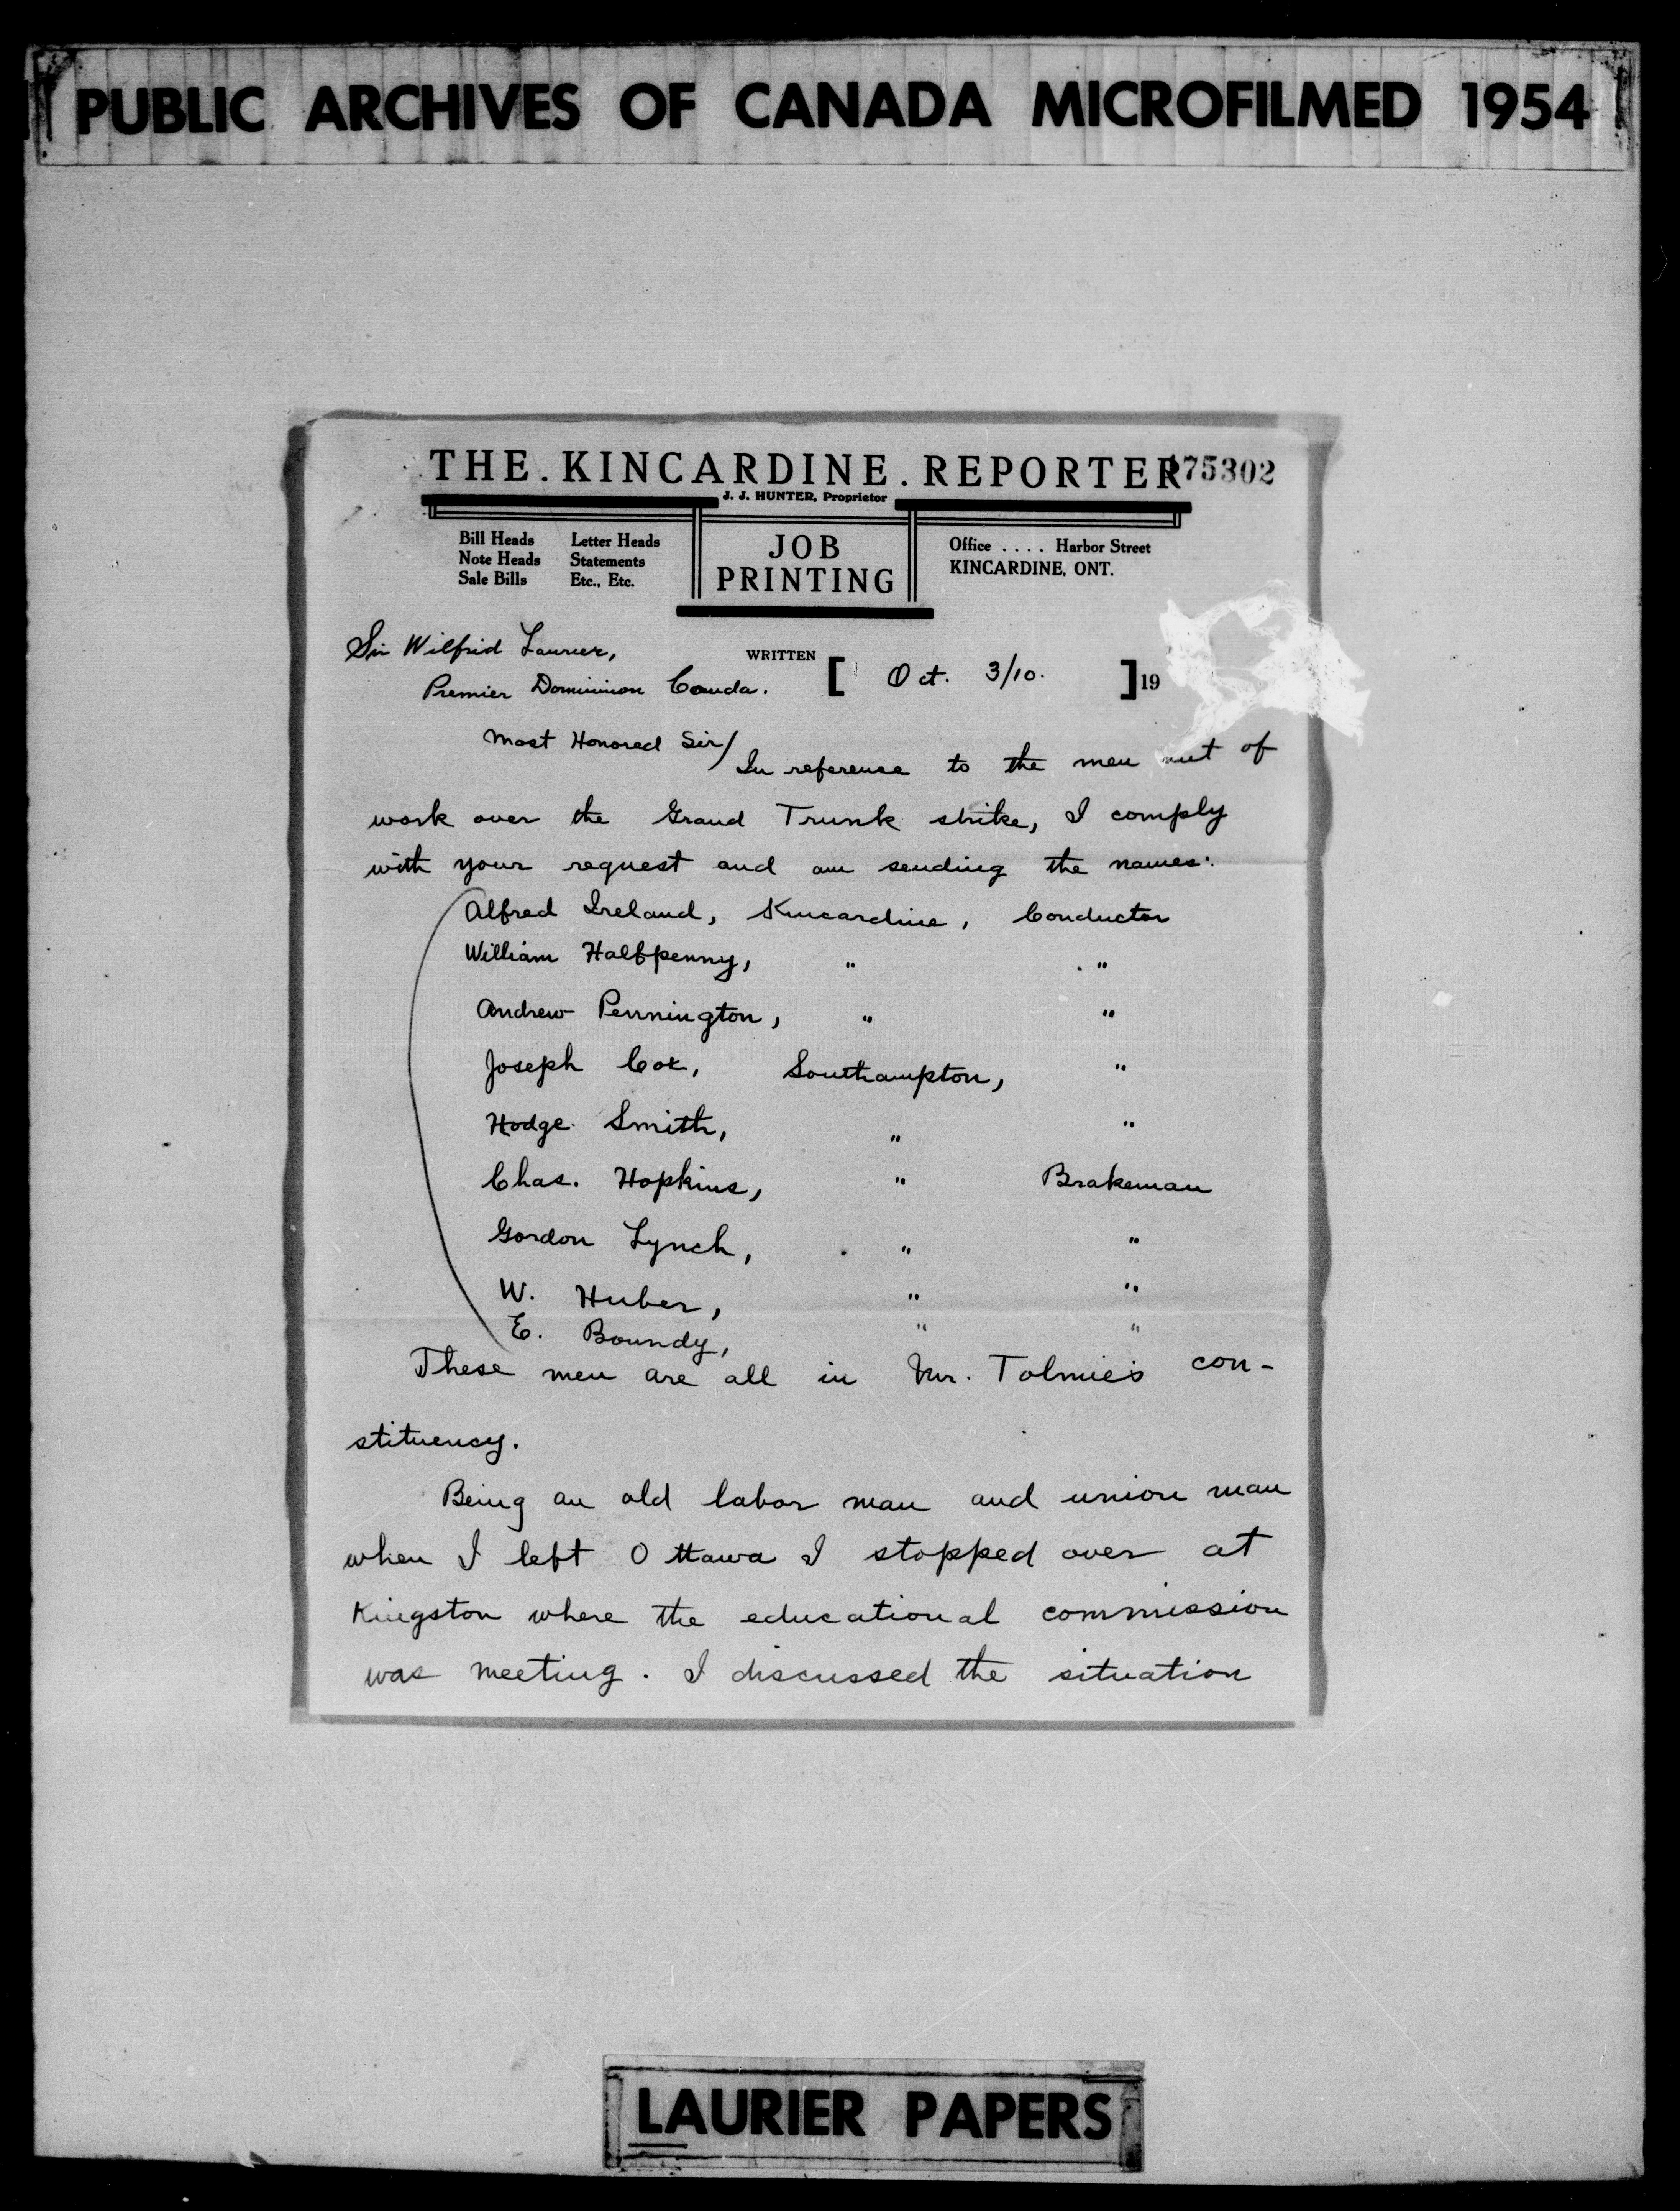 PUBLIC ARCHIVES OF CANADA MICROFILMED 1954
THE.KINCARDINE.REPORTER
175302
J. J. HUNTER, Proprietor
Bill Heads Letter Heads
Note Heads Statements
Sale Bills Etc., Etc.
JOB
PRINTING
Office .... Harbor Street
KINCARDINE, ONT.
Sir Wilfrid Laurier,
Premier Dominion Canda.
WRITTEN [ Oct. 3/10. ] 19
Most Honored Sir/
In reference to the men out of
work over the Grand Trunk strike, I comply
with your request and am sending the names:
Alfred Ireland, Kincardine, Conductor
William Halfpenny, " "
Andrew Pennington, " "
Joseph Cox, Southampton, "
Hodge Smith, " "
Chas. Hopkins, " Brakeman
Gordon Lynch, " "
W. Huber, " "
E. Boundy, " "
These men are all in Mr. Tolmie's con-
stituency.
Being an old labor man and union man
when I left Ottawa I stopped over at
Kingston where the educational commission
was meeting. I discussed the situation
LAURIER PAPERS